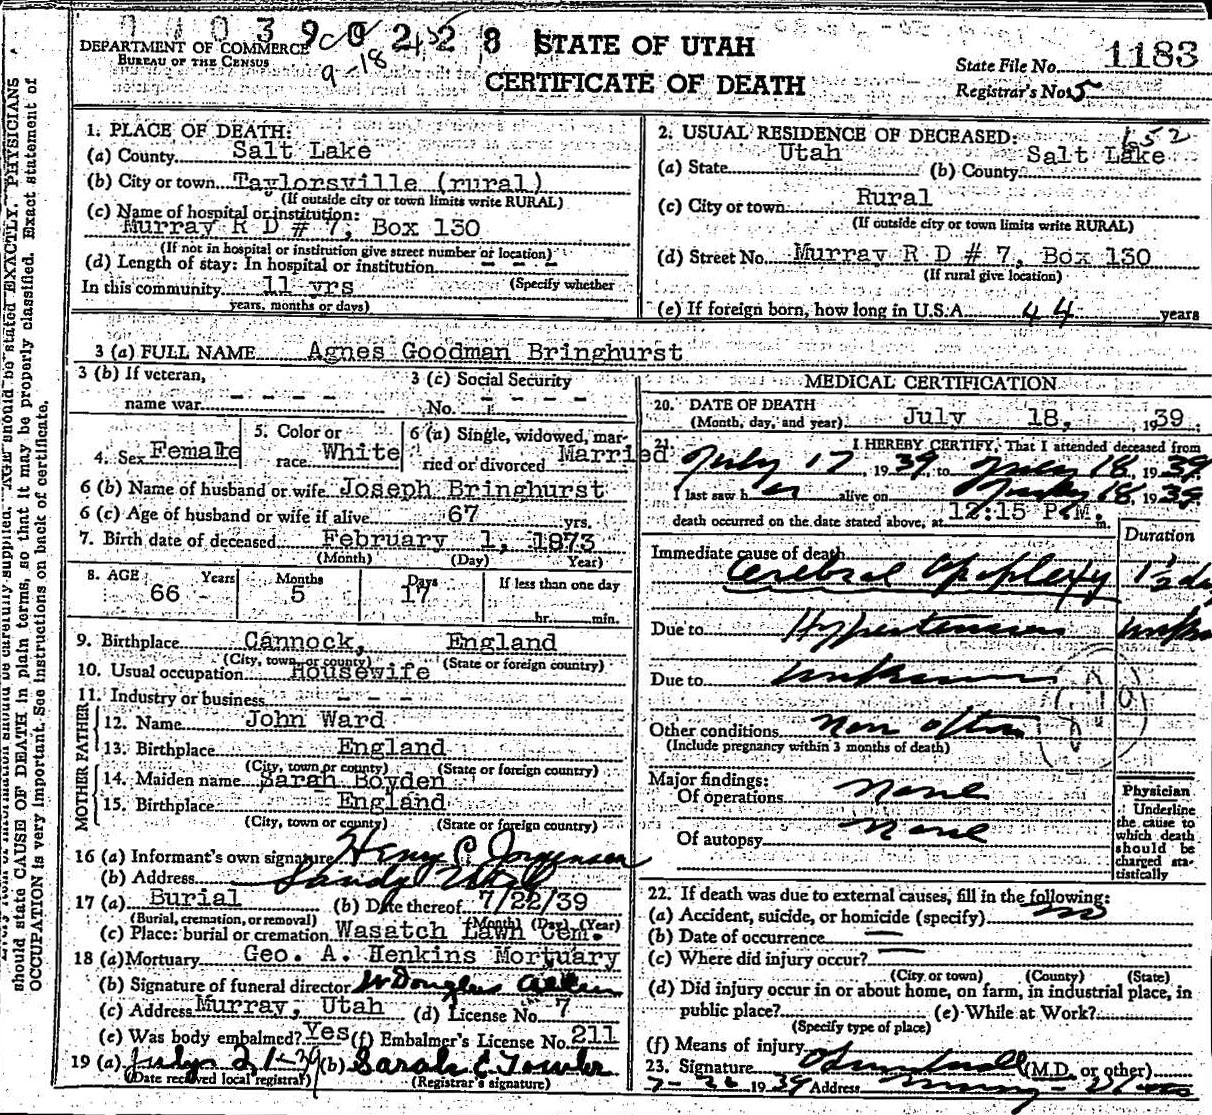 DEPARTMENT OF COMMERCE
BUREAU OF THE CENSUS
9-18
STATE OF UTAH
CERTIFICATE OF DEATH
State File No. 1183
Registrar's No. 5
1. PLACE OF DEATH:
(a) County Salt Lake
(b) City or town Taylorsville (rural)
(If outside city or town limits write RURAL)
(c) Name of hospital or institution:
Murray R D # 7, Box 130
(If not in hospital or institution give street number or location)
(d) Length of stay: In hospital or institution - - -
(Specify whether
In this community 11 yrs
years, months or days)
2. USUAL RESIDENCE OF DECEASED: 152
(a) State Utah (b) County Salt Lake
(c) City or town Rural
(If outside city or town limits write RURAL)
(d) Street No. Murray R D # 7, Box 130
(If rural give location)
(e) If foreign born, how long in U.S.A. 44 years
3 (a) FULL NAME Agnes Goodman Bringhurst
3 (b) If veteran, name war - - - -
3 (c) Social Security No. - - - -
4. Sex Female
5. Color or race White
6 (a) Single, widowed, married or divorced Married
6 (b) Name of husband or wife Joseph Bringhurst
6 (c) Age of husband or wife if alive 67 yrs.
7. Birth date of deceased February 1, 1873
(Month) (Day) Year)
8. AGE Years Months Days If less than one day
66 5 17 hr. min.
9. Birthplace Cannock, England
(City, town or county) (State or foreign country)
10. Usual occupation Housewife
11. Industry or business - - -
FATHER
12. Name John Ward
13. Birthplace England
(City, town or county) (State or foreign country)
MOTHER
14. Maiden name Sarah Boyden
15. Birthplace England
(City, town or county) (State or foreign country)
16 (a) Informant's own signature Henry C Jorgensen
(b) Address Sandy Utah
17 (a) Burial (b) Date thereof 7/22/39
(Burial, cremation, or removal) (Month) (Day) (Year)
(c) Place: burial or cremation Wasatch Lawn Cem.
18 (a) Mortuary Geo. A. Henkins Mortuary
(b) Signature of funeral director W Douglas
(c) Address Murray, Utah (d) License No. 7
(e) Was body embalmed? Yes (f) Embalmer's License No. 211
19 (a) July 21-39 (b) Sarah E
(Date received local registrar) (Registrar's signature)
MEDICAL CERTIFICATION
20. DATE OF DEATH
(Month, day, and year) July 18, 1939
21. I HEREBY CERTIFY, That I attended deceased from
July 17 1939, to July 18 1939
I last saw her alive on July 18, 1939
death occurred on the date stated above, at 12:15 P.M. m.
Duration
Immediate cause of death
Cerebral Apoplexy 1½
Due to Hypertension
Due to unknown
Other conditions
(Include pregnancy within 3 months of death)
Major findings:
Of operations None
Of autopsy None
Physician
Underline
the cause to
which death
should be
charged sta-
tistically
22. If death was due to external causes, fill in the following:
(a) Accident, suicide, or homicide (specify) no
(b) Date of occurrence
(c) Where did injury occur?
(City or town) (County) (State)
(d) Did injury occur in or about home, on farm, in industrial place, in
public place? (e) While at Work?
(Specify type of place)
(f) Means of injury
23. Signature (M.D. or other)
1939 Address Murray - Utah
should be carefully supplied. AGE should be stated EXACTLY. PHYSICIANS
should state CAUSE OF DEATH in plain terms, so that it may be properly classified. Exact statement of
OCCUPATION is very important. See instructions on back of certificate.